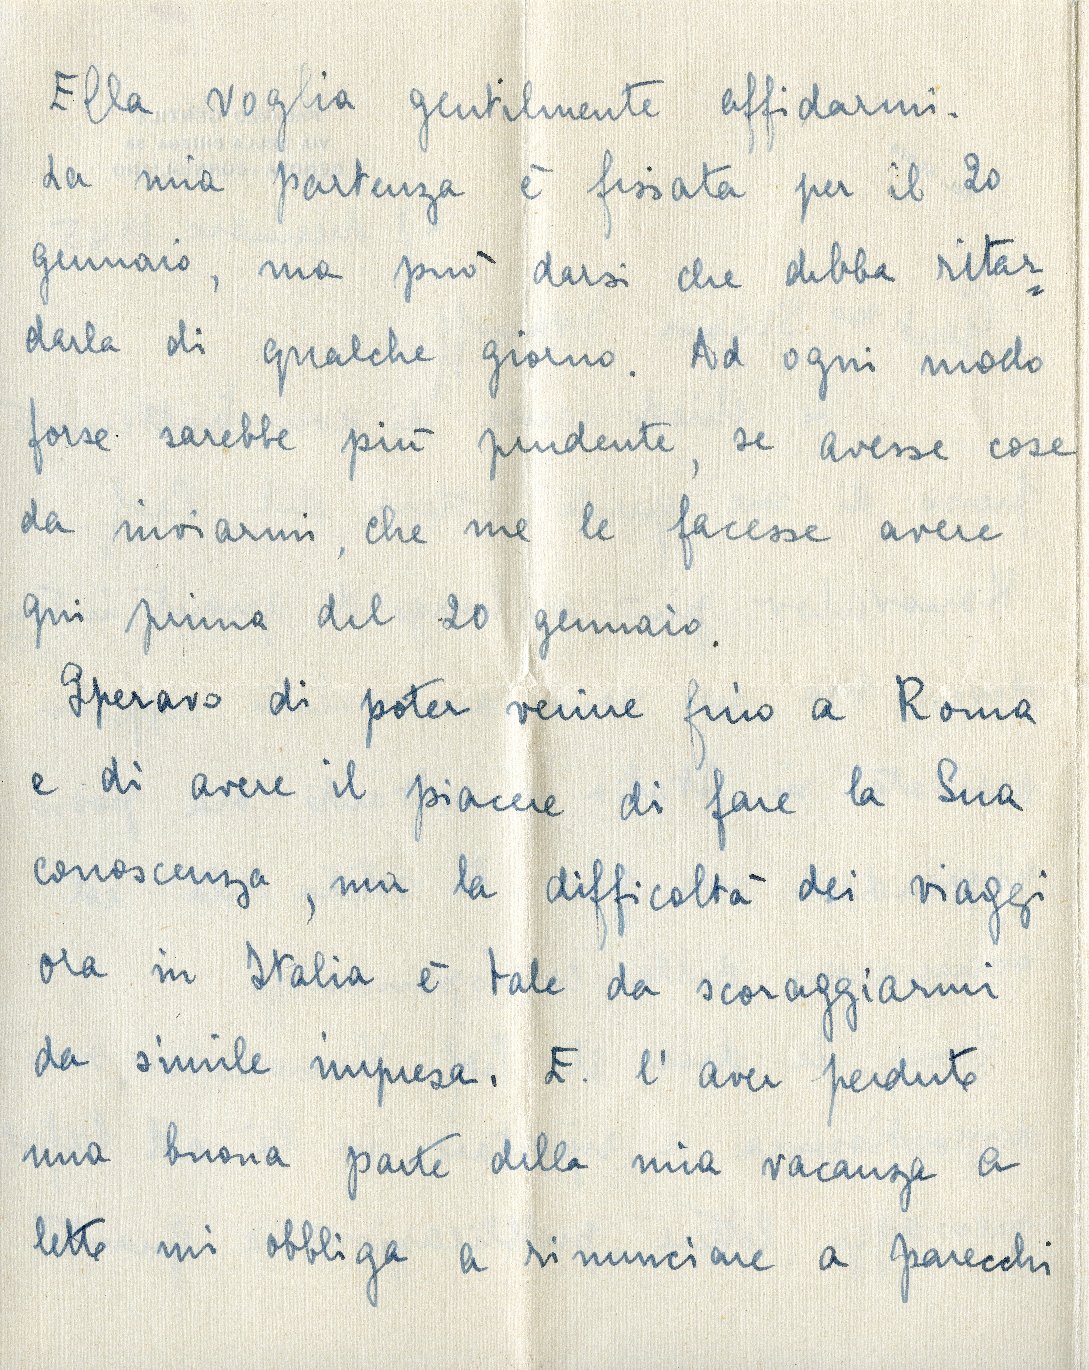 Ella voglia gentilmente affidarmi.
La mia partenza è fissata per il 20
gennaio, ma può darsi che debba ritar=
darla di qualche giorno. Ad ogni modo
forse sarebbe più prudente, se avesse cose
da inviarmi, che me le facesse avere
qui prima del 20 gennaio.
Speravo di poter venire fino a Roma
e di avere il piacere di fare la Sua
conoscenza, ma la difficoltà dei viaggi
ora in Italia è tale da scoraggiarmi
da simile impresa. E. l'aver perduto
una buona parte della mia vacanza a
letto mi obbliga a rinunciare a parecchi